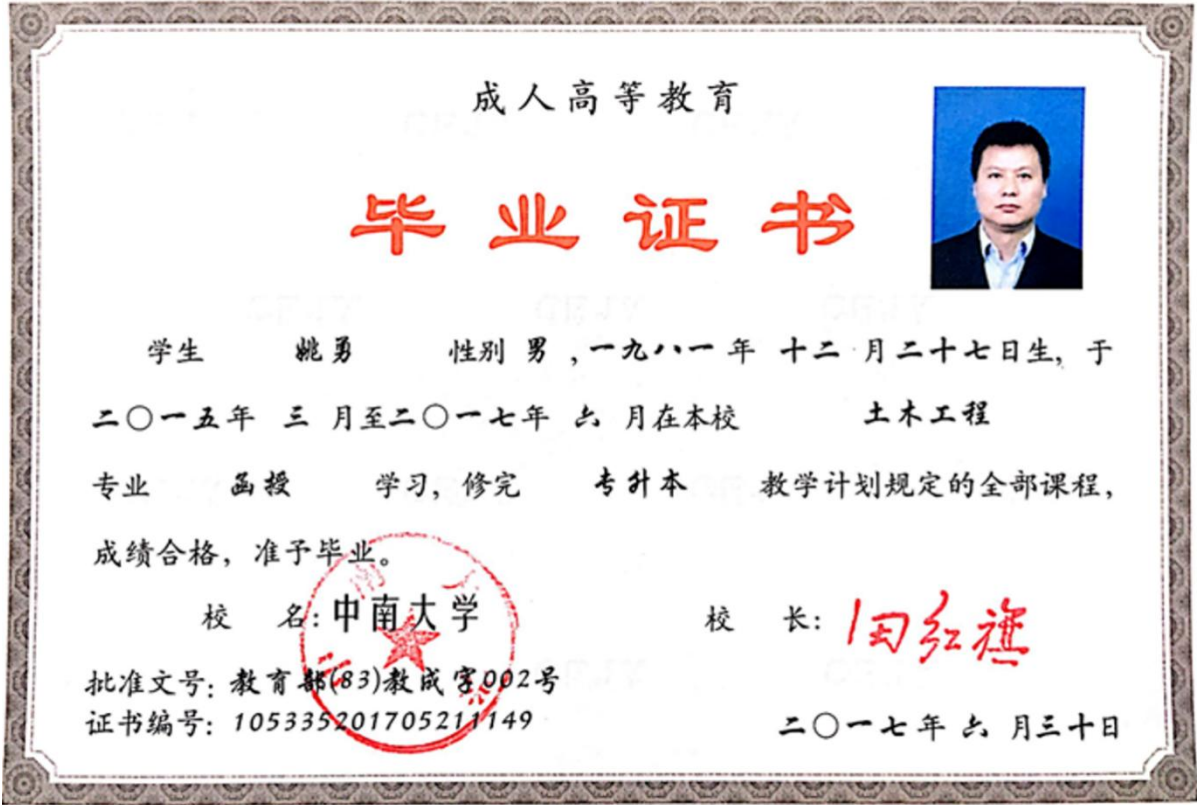 成人高等教育
毕业证书
学生 姚勇 性别 男 ,一九八一年 十二 月二十七日生, 于
二〇一五年 三 月至二〇一七年 六 月在本校 土木工程
专业 函授 学习, 修完 专升本 教学计划规定的全部课程,
成绩合格, 准予毕业。
校 名: 中南大学 校 长: 田红旗
批准文号: 教育部(83)教成字002号
证书编号: 105335201705211149
二〇一七年 六 月三十日